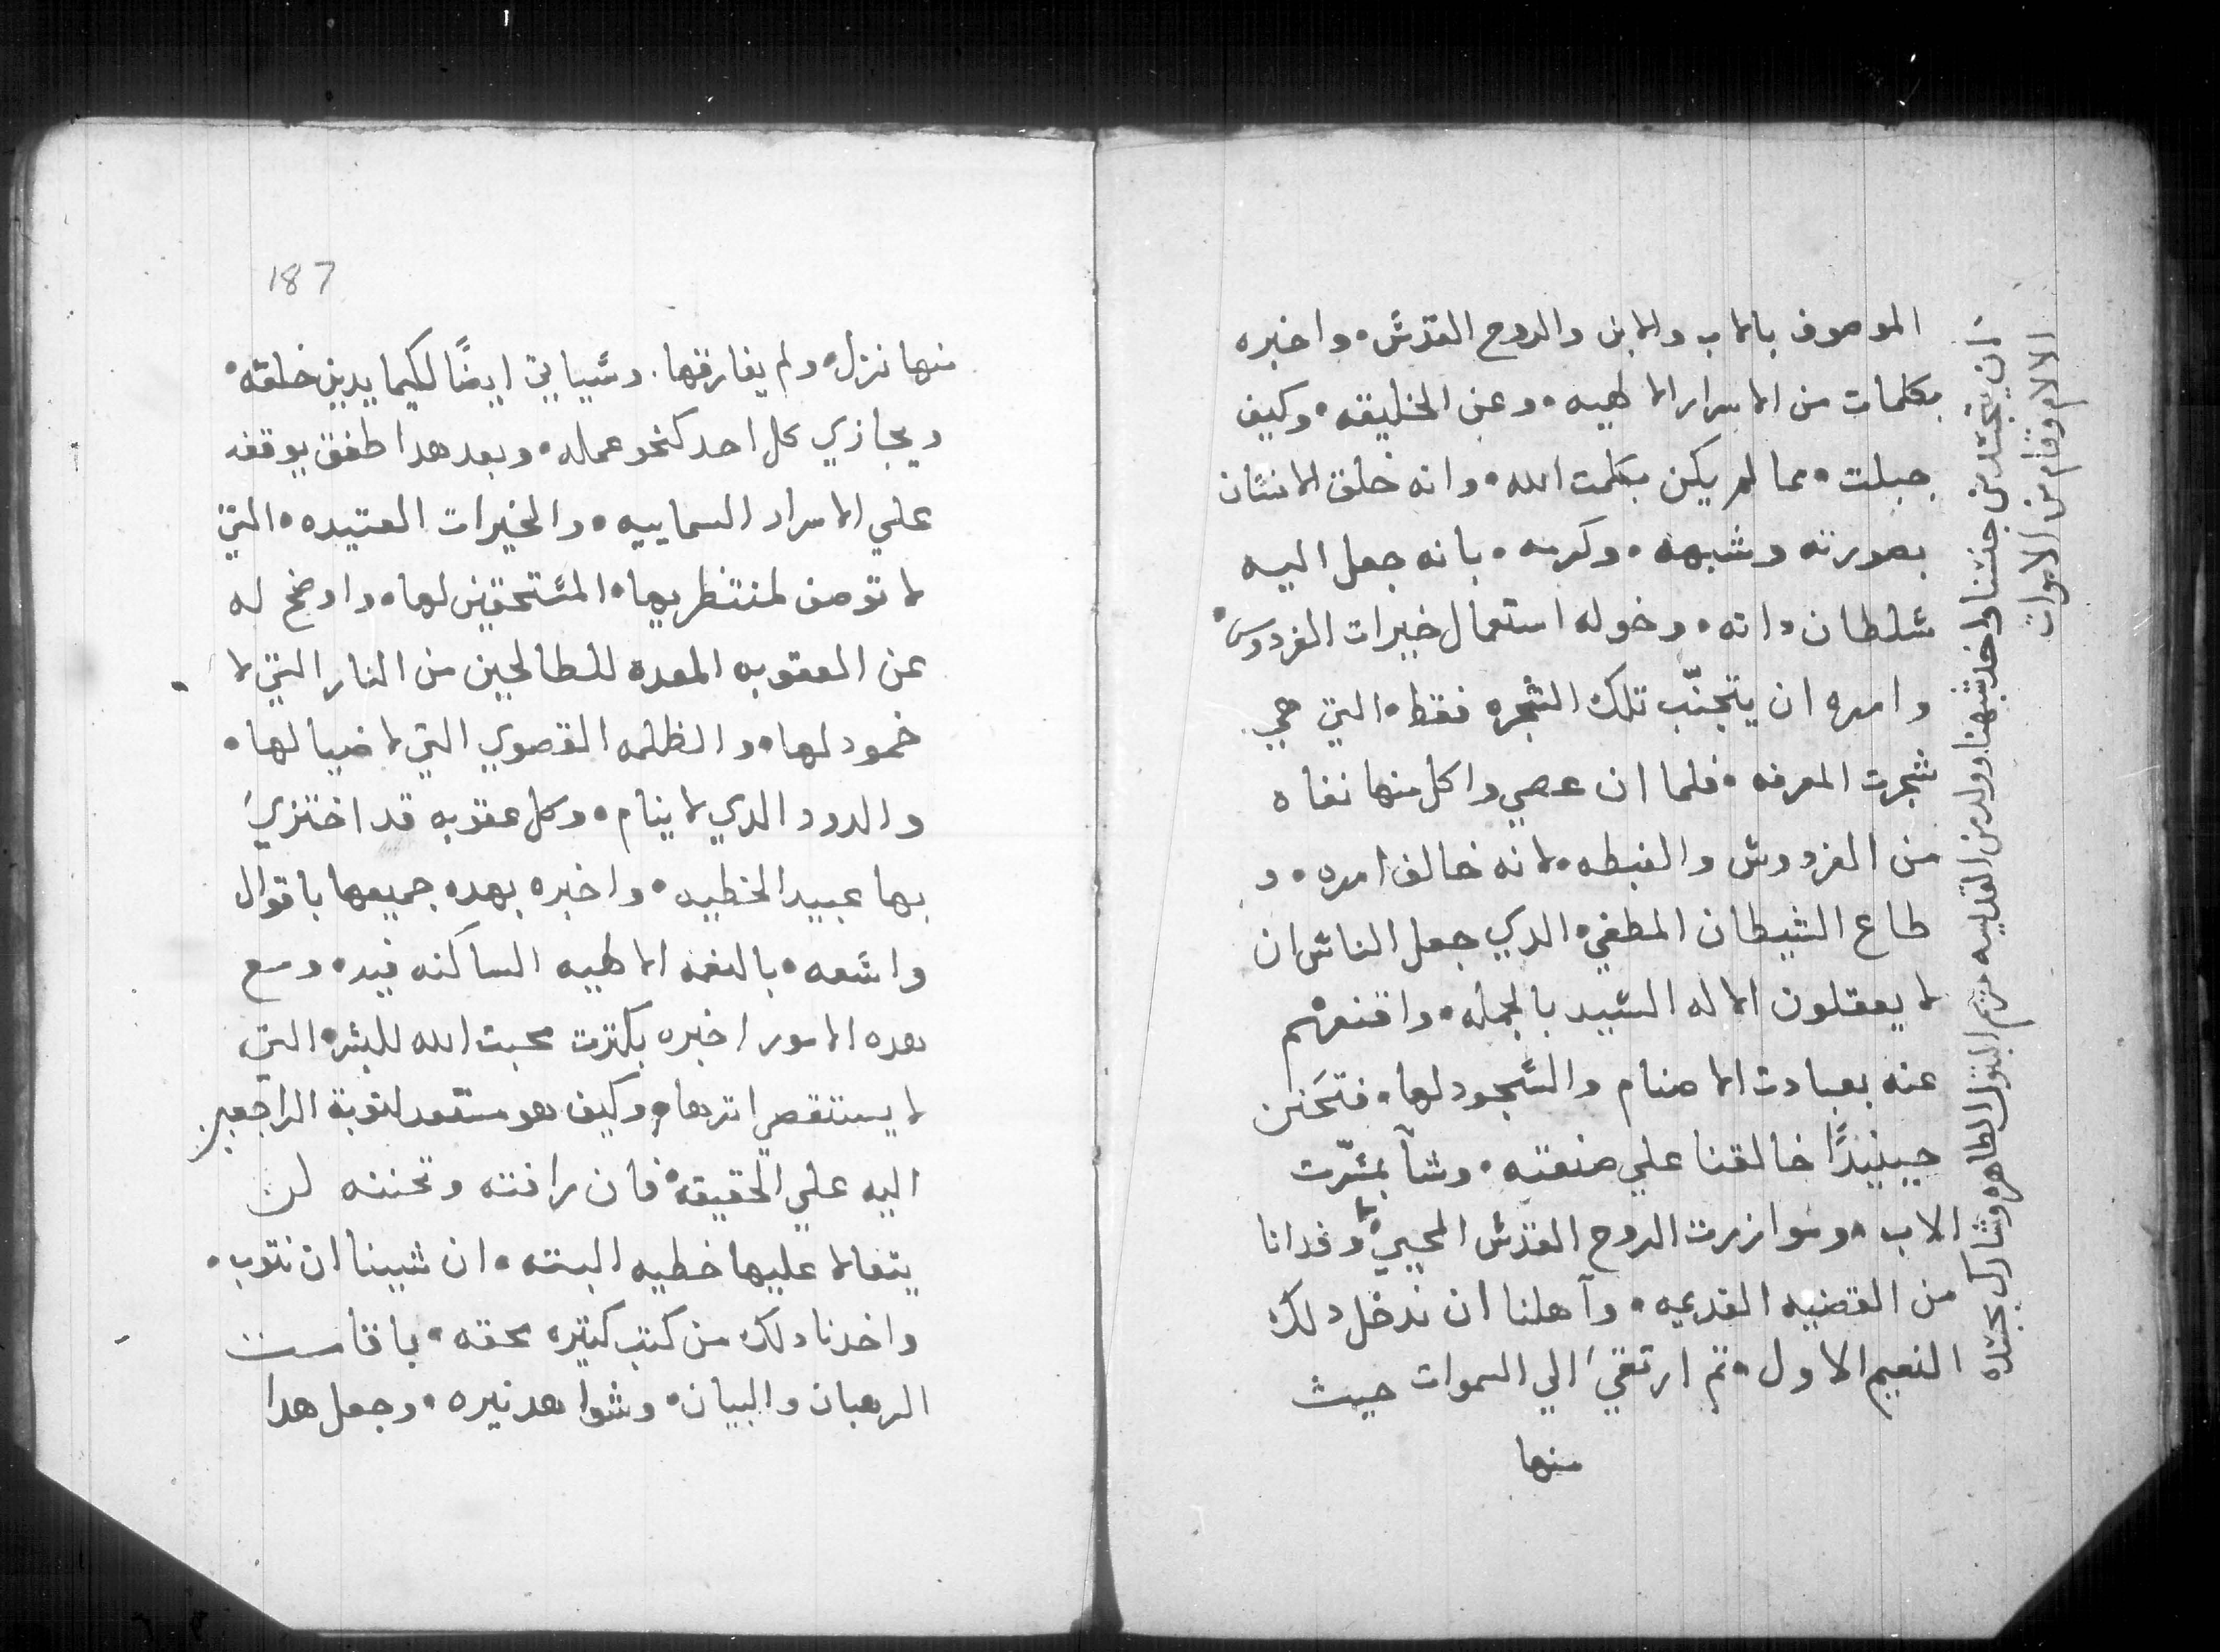 الموصوف بالاب والابن والروح القدش • واخبره
بكلمات من الاسرار الالهيه • وعن الخليقه • وكيف
جبلت • مما لم يكن بكلمت الله • وانه خلق الانشان
بصورته وشبهه • وكرمه • بانه جعل اليه
شلطان داته • وخوله استعمال خيرات الفردوس •
وامره ان يتجنّب تلك الشجره فقط • التي هي
شجرت المعرفه • فلما ان عصي واكل منها نفاه
من الفردوش والغبطه • لانه خالف امره • و
طاع الشيطان المطغي • الدي جعل الناش ان
لا يعقلون الاله الشيد بالجمله • واقنعهم
عنه بعبادت الاصنام والشجود لها • فتحَنن
حينيدًا خالقنا علي صنعته • وشآ بمشرّت
الاب • وموازرت الروح القدش المحيي • وفدانا
من القضيه القديمه • وآهلنا ان ندخل دلك
النعيم الاول • تم ارتقيَ الي السموات حيث
منها
ان يتجشد من جنشنا واخد شبهنا وولد من القديسه مريم البتول الطاهره وشارك بجشده
الالام وقام من الاموات
187
منها نزل • ولم يفارقها. وشياتي ايضًا لكيما يدين خلقته •
ويجازي كل احد كنحو عمله • وبعد هدا طفق يوقفه
علي الاسرار السماييه • والخيرات العتيده • التي
لا توصف لمنتظريها • المشتحقين لها • واوضح له
عن العقوبه المعده للطالحين من النار التي لا
خمود لها • والظلمه القصوي التي لا ضيا لها •
والدود الدي لا ينام • وكل عقوبه قد اختزيَ
بها عبيد الخطيه • واخبره بهده جميعها باقوال
واشعه • بالنعمه الالهيه الساكنه فيه • ومع
هده الامور اخبره بكترت محبت الله للبشر • التي
لا يستقصي اترها • وكيف هو مستعد لتوبة الراجعين
اليه علي الحقيقه • فان رافته وتحننه لن
يتغالا عليها خطيه البته • ان شينا ان نتوب •
واخدنا دلك من كتب كتيره محقه • باقامت
الرهبان والبيان • وشواهد نيره • وجعل هدا